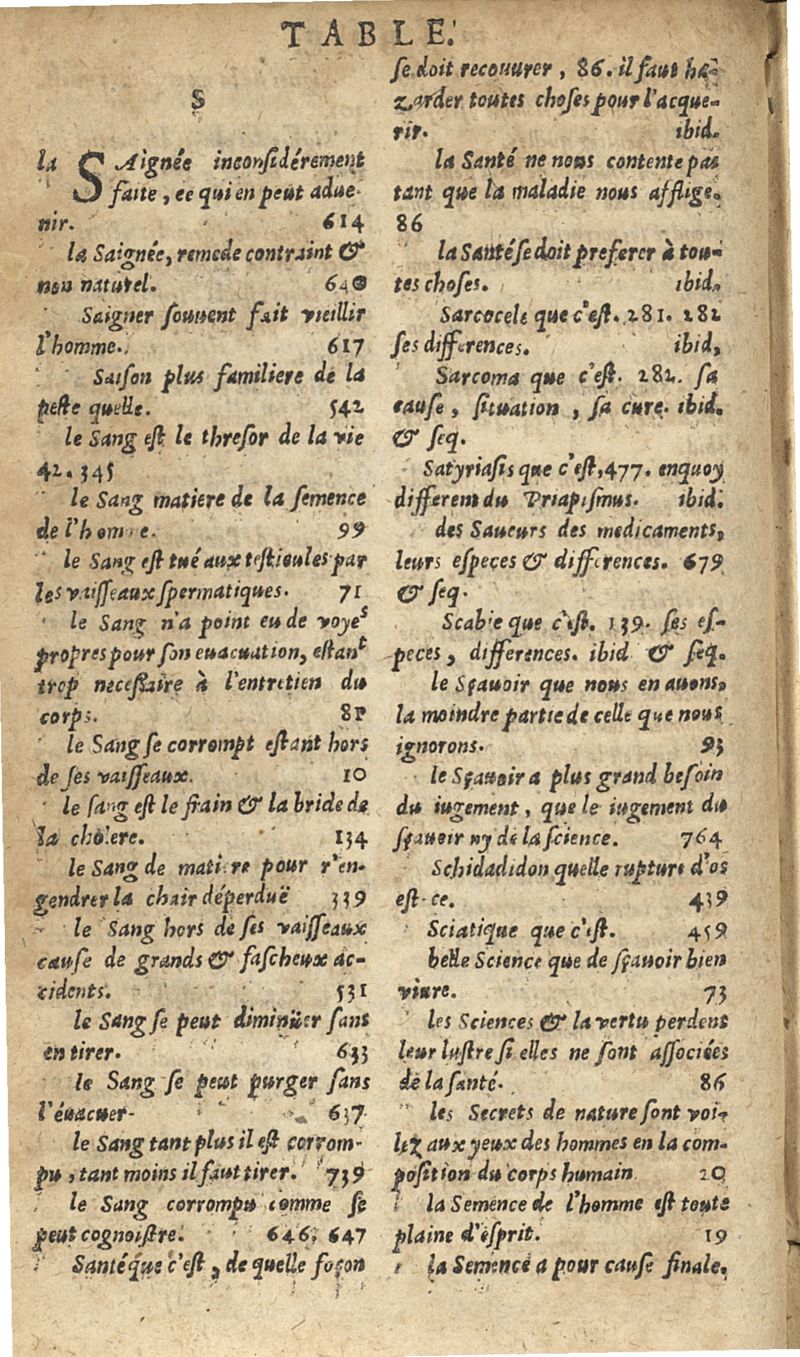 TABLE.
S
la SAignée inconsidérement
faite, ce qui en peut adue-
nir. 614
la Saignée, remede contraint &
non naturel. 640
Saigner souuent fait vieillir
l'homme. 617
Saison plus familiere de la
peste quelle. 542
le Sang est le thresor de la vie
42. 345
le Sang matiere de la semence
de l'homme. 99
le Sang est tué aux testicules par
les vaisseaux spermatiques. 71
le Sang n'a point eu de voyes
propres pour son euacuation, estant
trop necessaire à l'entretien du
corps. 81
le Sang se corrompt estant hors
de ses vaisseaux. 10
le sang est le frain & la bride de
la cholere. 134
le Sang de matiere pour r'en-
gendrer la chair déperduë 339
le Sang hors de ses vaisseaux
cause de grands & fascheux ac-
cidents. 531
le Sang se peut diminüer sans
en tirer. 633
le Sang se peut purger sans
l'éuacuer. 637
le Sang tant plus il est corrom-
pu, tant moins il faut tirer. 739
le Sang corrompu comme se
peut cognoistre. 646. 647
Santé que c'est, de quelle foçon
se doit recouurer, 86. il faut ha-
zarder toutes choses pour l'acque-
rir. ibid.
la Santé ne nous contente pas
tant que la maladie nous afflige.
86
la Santé se doit preferer à tou-
tes choses. ibid.
Sarcocele que c'est. 281. 282
ses differences. ibid,
Sarcoma que c'est. 282. sa
cause, situation, sa cure. ibid.
& seq.
Satyriasis que c'est, 477. enquoy
different du Priapismus. ibid.
des Saueurs des medicaments,
leurs especes & differences. 679
& seq.
Scabie que c'est. 139. ses es-
peces, differences. ibid & seq.
le Sçauoir que nous en auons,
la moindre partie de celle que nous
ignorons. 93
le Sçauoir a plus grand besoin
du iugement, que le iugement du
sçauoir ny de la science. 764
Schidadidon quelle rupture d'os
est-ce. 439
Sciatique que c'est. 459
belle Science que de sçauoir bien
viure. 73
les Sciences & la vertu perdent
leur lustre si elles ne sont associées
de la santé. 86
les Secrets de nature sont voi-
lez aux yeux des hommes en la com-
position du corps humain 20
la Semence de l'homme est toute
plaine d'esprit. 19
la Semence a pour cause finale,